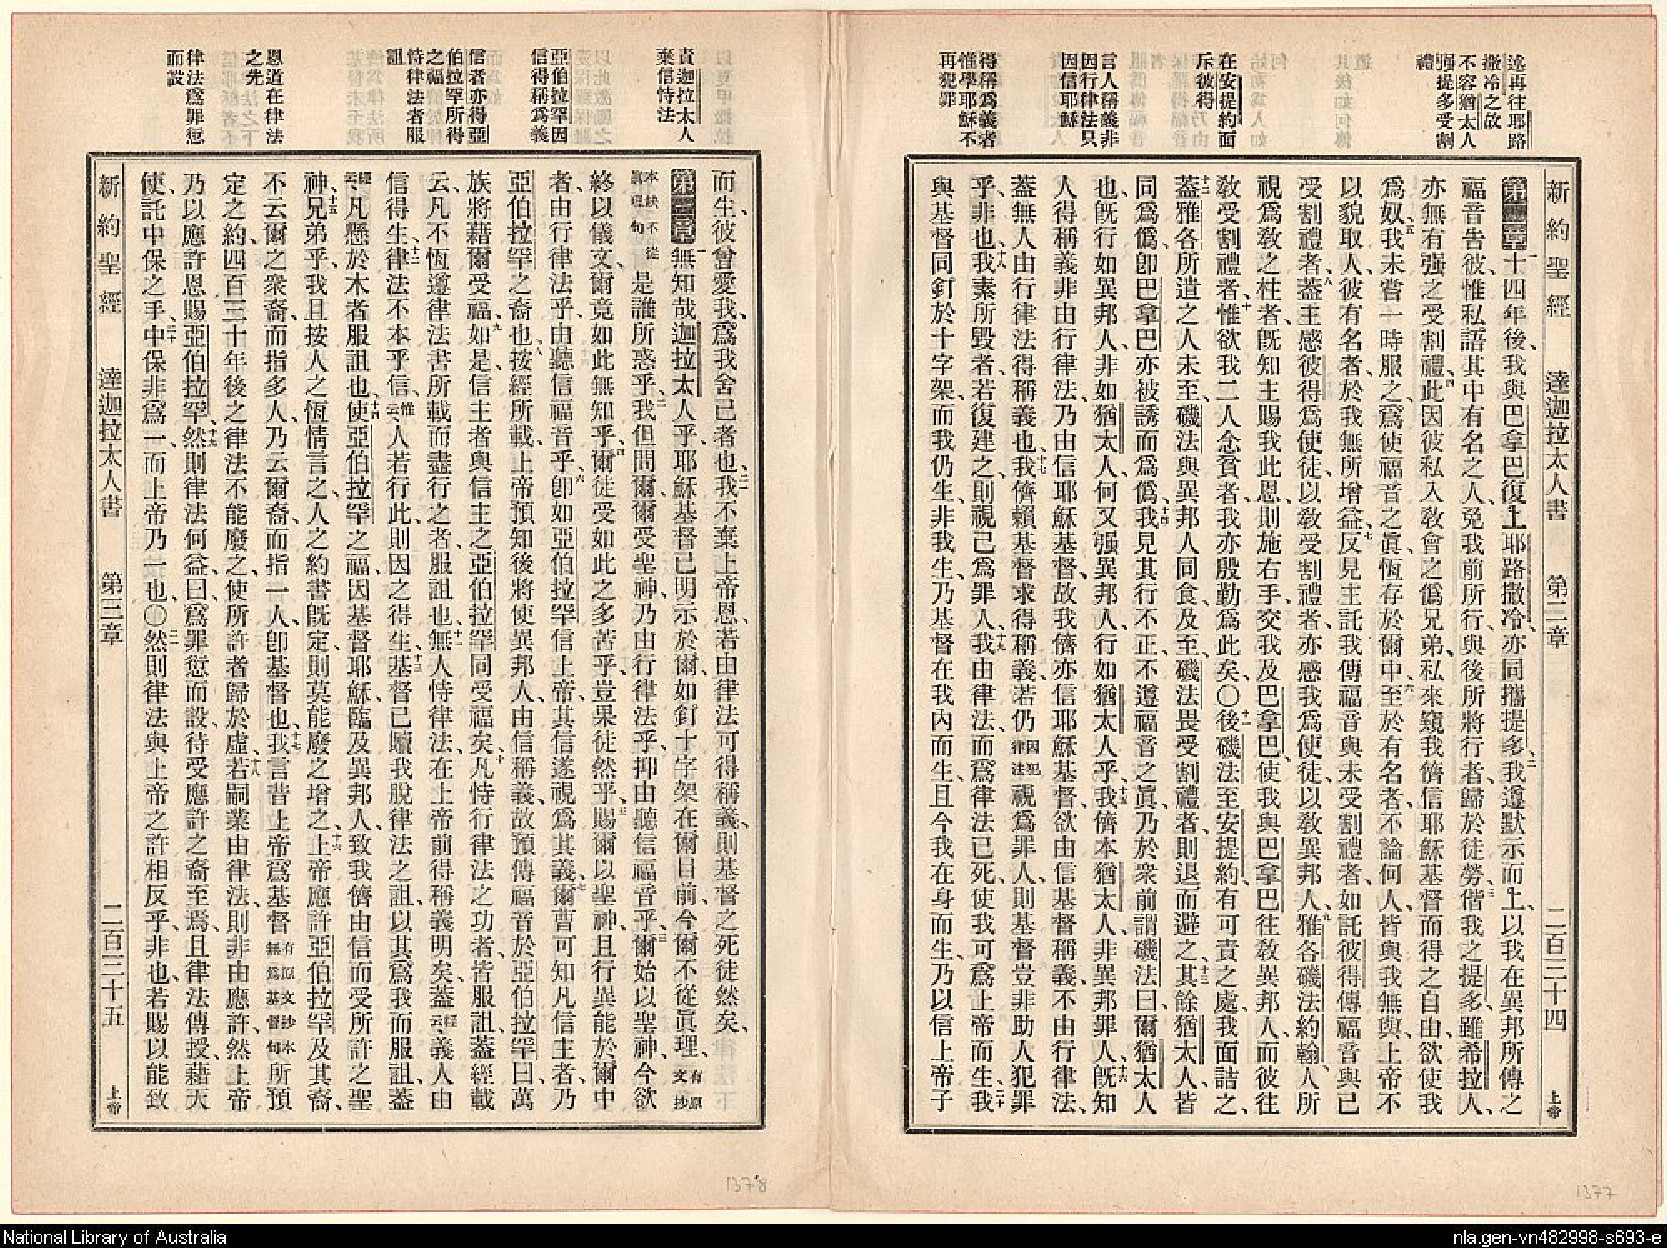 述再往耶路
撒冷之故
不容猶太人
強提多受割
禮
在安提約面
斥彼得
言人稱義非
因行律法只
因信耶穌
得稱爲義者
惟學耶穌不
再犯罪
新約聖經 達迦拉太人書 第二章 二百二十四 上帝
第二章一十四年後、我與巴拿巴復上耶路撒冷、亦同攜提多、二我遵默示而上、以我在異邦所傳之
福音告彼、惟私語其中有名之人、免我前所行、與後所將行者、歸於徒勞、三偕我之提多、雖希拉人、
亦無有强之受割禮、四此因彼私入敎會之僞兄弟、私來窺我儕信耶穌基督而得之自由、欲使我
爲奴、五我未嘗一時服之、爲使福音之眞、恆存於爾中、六至於有名者、不論何人、皆與我無與、上帝不
以貌取人、彼有名者、於我無所增益、七反見主託我傳福音與未受割禮者、如託彼得傳福音與已
受割禮者、八蓋主感彼得爲使徒、以敎受割禮者、亦感我爲使徒、以敎異邦人、九雅各磯法約翰、人所
視爲敎之柱者、旣知主賜我此恩、則施右手交我及巴拿巴、使我與巴拿巴往敎異邦人、而彼往
敎受割禮者、十惟欲我二人念貧者、我亦殷勤爲此矣、〇十一後磯法至安提約、有可責之處、我面詰之、
十二蓋雅各所遣之人未至、磯法與異邦人同食、及至、磯法畏受割禮者、則退而避之、十三其餘猶太人、皆
同爲僞、卽巴拿巴亦被誘而爲僞、十四我見其行不正、不遵福音之眞、乃於衆前謂磯法曰、爾猶太人
也、旣行如異邦人、非如猶太人、何又强異邦人行如猶太人乎、十五我儕本猶太人、非異邦罪人、十六旣知
人得稱義、非由行律法、乃由信耶穌基督、故我儕亦信耶穌基督、欲由信基督稱義、不由行律法、
蓋無人由行律法得稱義也、十七我儕賴基督求得稱義、若仍因犯律法視爲罪人、則基督豈非助人犯罪
乎、非也、十八我素所毀者、若復建之、則視己爲罪人、十九我由律法、而爲律法已死、使我可爲上帝而生、二十我
與基督同釘於十字架、而我仍生、非我生、乃基督在我內而生、且今我在身而生、乃以信上帝子
責迦拉太人
棄信恃法
亞伯拉罕因
信得稱爲義
信者亦得亞
伯拉罕所得
之福
恃律法者服
詛
恩道在律法
之先
律法爲罪愆
而設
而生、彼曾愛我、爲我舍己者也、二一我不棄上帝恩、若由律法可得稱義、則基督之死徒然矣、
第三章一無知哉迦拉太人乎、耶穌基督已明示於爾、如釘十字架在爾目前、今爾不從眞理、有原文抄
本缺不從眞理句是誰所惑乎、二我但問爾、爾受聖神、乃由行律法乎、抑由聽信福音乎、三爾始以聖神、今欲
終以儀文、爾竟如此無知乎、四爾徒受如此之多苦乎、豈果徒然乎、五賜爾以聖神、且行異能於爾中
者、由行律法乎、由聽信福音乎、六卽如亞伯拉罕信上帝、其信遂視爲其義、七爾曹可知凡信主者、乃
亞伯拉罕之裔也、八按經所載、上帝預知後將使異邦人由信稱義、故預傳福音於亞伯拉罕曰、萬
族將藉爾受福、九如是、信主者與信主之亞伯拉罕同受福矣、十凡恃行律法之功者、皆服詛、蓋經載
云、凡不恆遵律法書所載而盡行之者服詛也、十一無人恃律法在上帝前得稱義明矣、蓋經云義人由
信得生、十二律法不本乎信、惟云人若行此、則因之得生、十三基督已贖我脫律法之詛、以其爲我而服詛、蓋
經云凡懸於木者服詛也、十四使亞伯拉罕之福、因基督耶穌臨及異邦人、致我儕由信而受所許之聖
神、十五兄弟乎、我且按人之恆情言之、人之約書旣定、則莫能廢之增之、十六上帝應許亞伯拉罕及其裔、
不云爾之衆裔、而指多人、乃云爾裔、而指一人、卽基督也、十七我言昔上帝爲基督有原文抄本無爲基督句所預
定之約、四百三十年後之律法、不能廢之、使所許者歸於虛、十八若嗣業由律法、則非由應許、然上帝
乃以應許恩賜亞伯拉罕、十九然則律法何益、曰、爲罪愆而設、待受應許之裔至焉、且律法傳授、藉天
使、託中保之手、二十中保非爲一、而上帝乃一也、〇二一然則律法與上帝之許相反乎、非也、若賜以能致
新約聖經 達迦拉太人書 第三章 二百二十五 上帝
1378
1377
National Library of Australia
nla.gen-vn482998-s693-e